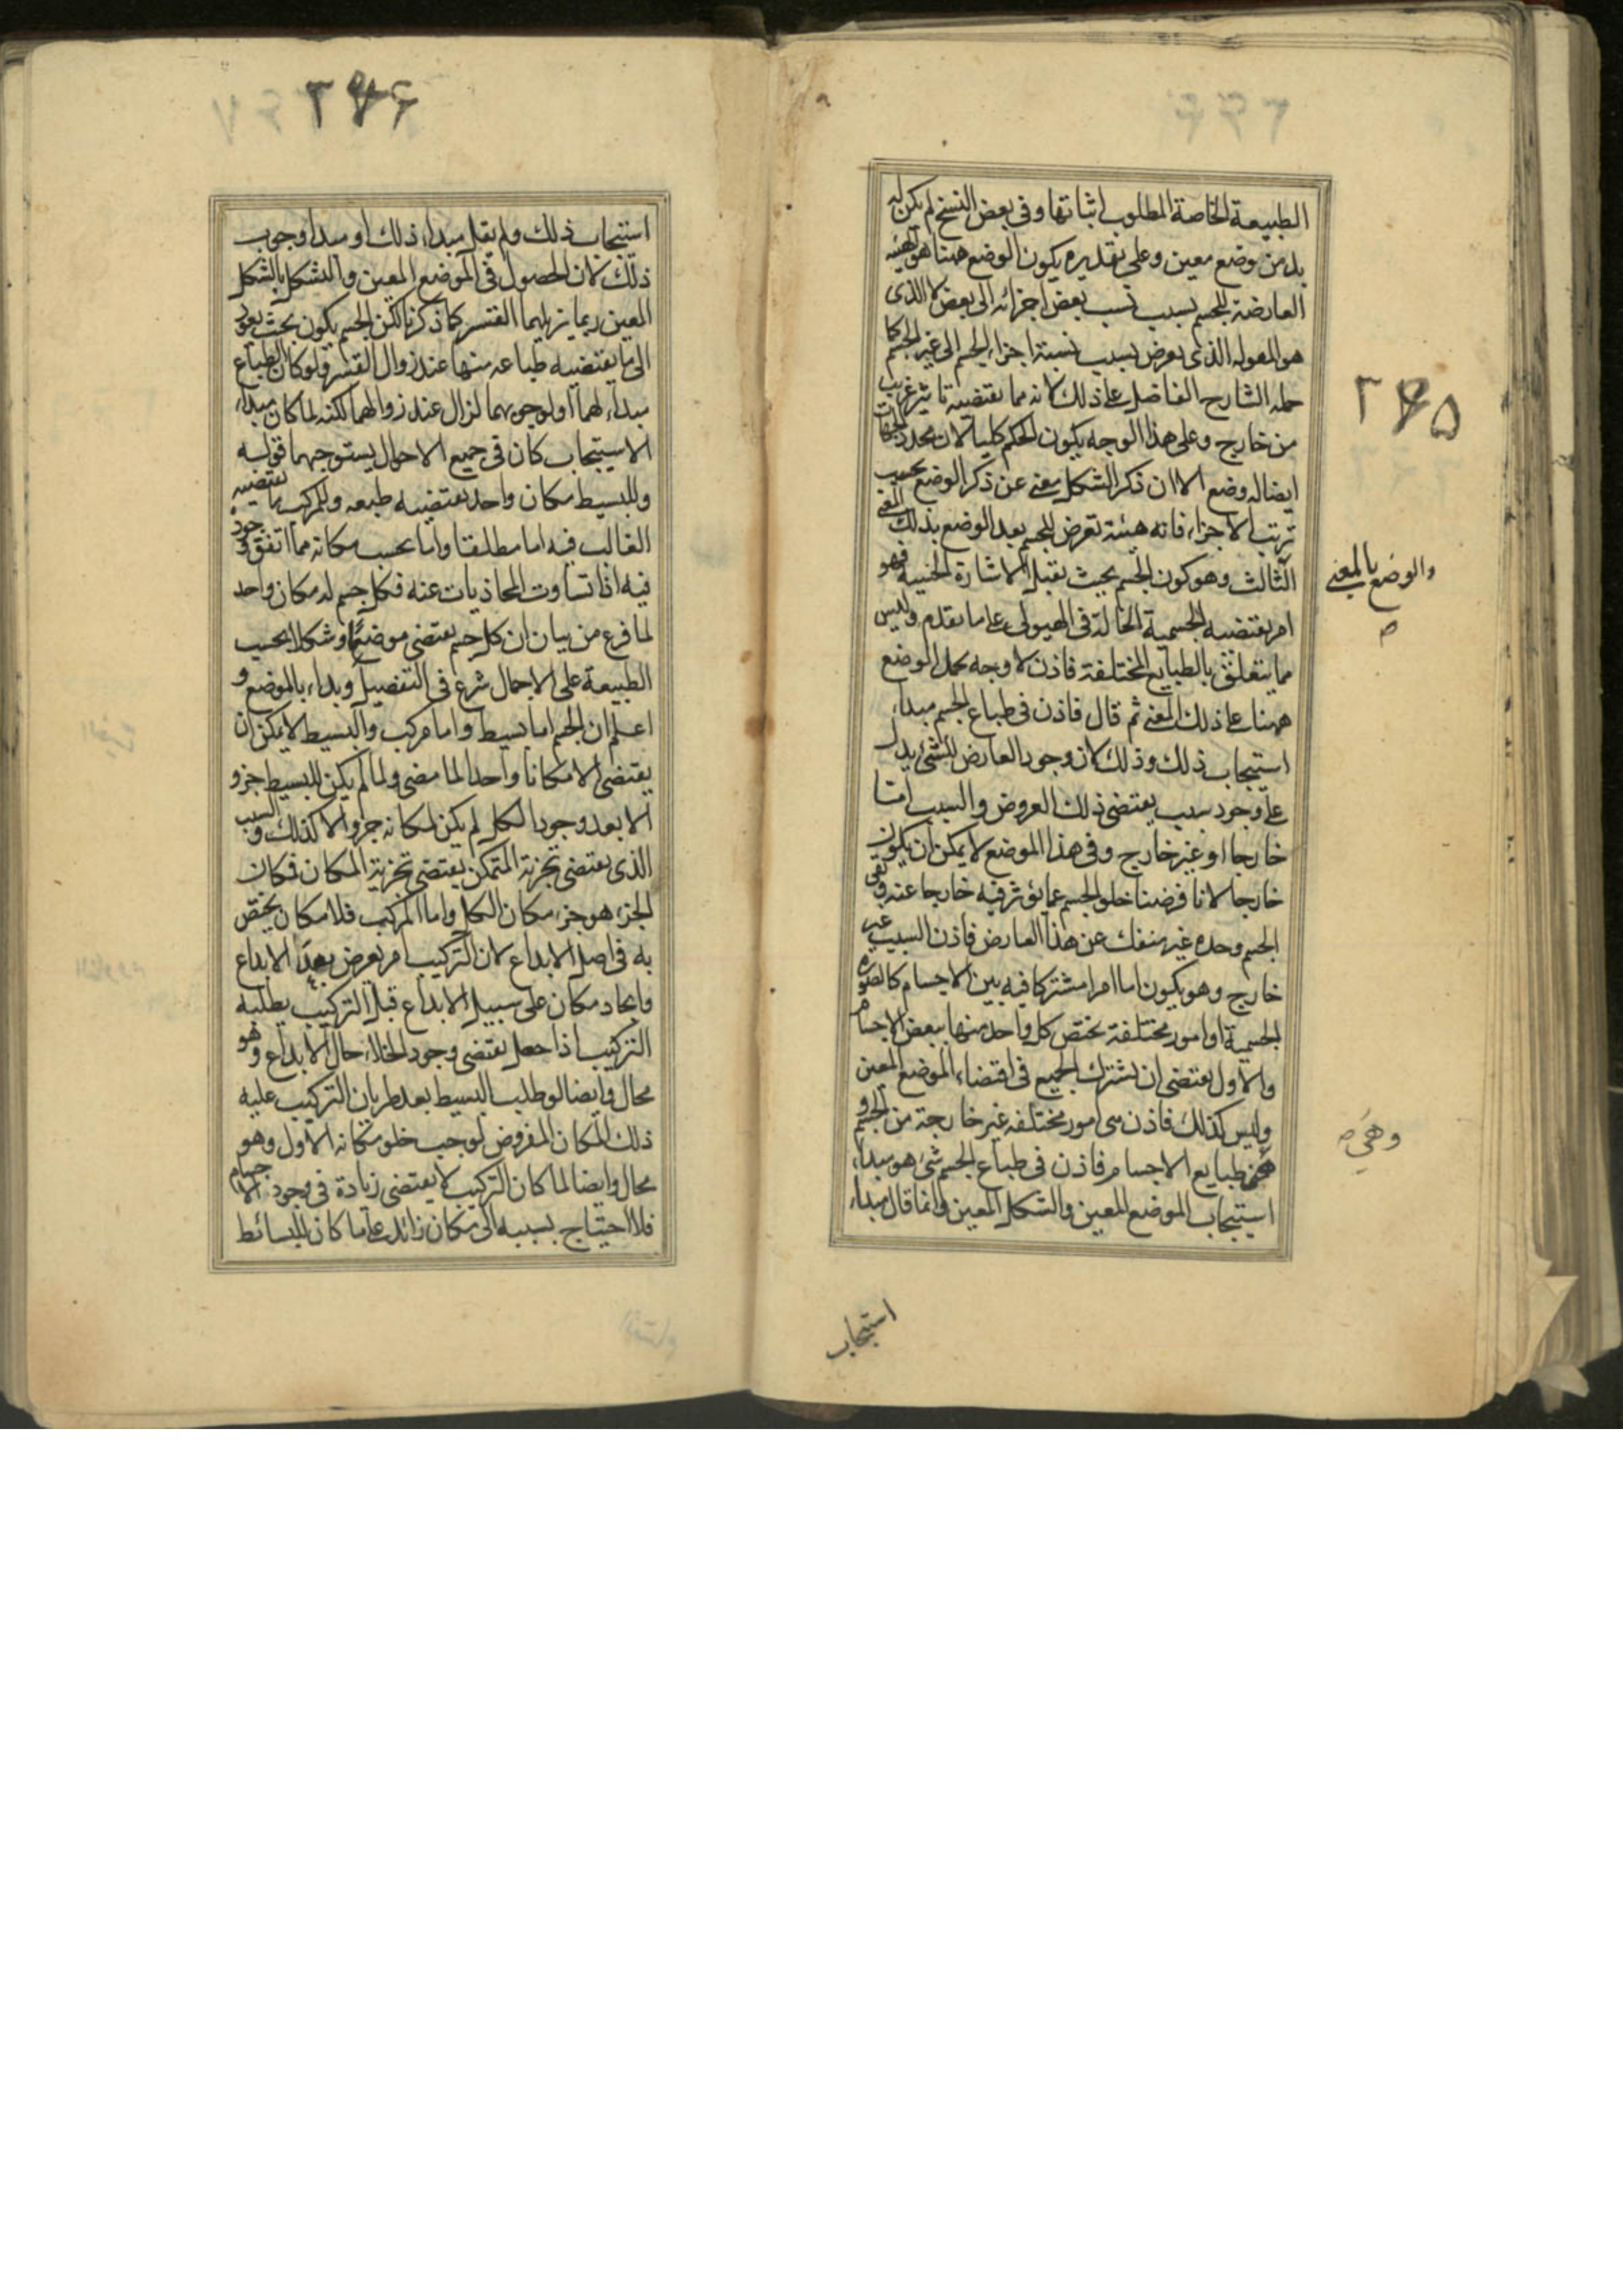 ٢٦٥
الطبيعة الخاصة المطلوب اثباتها وفى بعض النسخ لم يكن له
بد من وضع معين وعلى تقديره يكون الوضع ههنا هو الهيئة
العارضة للجسم بسبب نسب بعض اجزائه الى بعض لا الذى
هو المقولة الذى يعرض بسبب نسبة اجزاء الجسم الى غير الجسم كما
حمله الشارح الفاضل على ذلك لانه مما يقتضيه تاثير غريب
من خارج وعلى هذا الوجه يكون الحكم كليا لان محدد الجهات
ايضا له وضع الا ان ذكر الشكل يغنى عن ذكر الوضع بحسب
ترتب الاجزاء فانه هيئة تعرض للجسم بعد الوضع بذلك المعنى
والوضع بالمعنى صح
الثالث وهو كون الجسم بحيث يقبل الاشارة الحسية فهو
امر يقتضيه الجسمية الحالة فى الهيولى على ما تقدم وليس
مما يتعلق بالطبايع المختلفة فاذن لا وجه لحمل الوضع
ههنا على ذلك المعنى ثم قال فاذن فى طباع الجسم مبداء
استيجاب ذلك وذلك لان وجود العارض للشئ يدل
على وجود سبب يقتضى ذلك العروض والسبب اما
خارجا او غير خارج وفى هذا الموضع لا يمكن ان يكون
خارجا لانا فرضنا خلو الجسم عما يؤثر فيه خارجا عنه وبقى
الجسم وحده غير منفك عن هذا العارض فاذن السبب غير
خارج وهو يكون اما امرا مشتركا فيه بين الاجسام كالصورة
الجسمية او امور مختلفة يختص كل واحد منها ببعض الاجسام
والاول يقتضى ان يشترك الجميع فى اقتضاء الموضع المعين
وليس كذلك فاذن هى امور مختلفه غير خارجة من الجسم و
وهى صح
طبايع الاجسام فاذن فى طباع الجسم شئ هو مبداء
استيجاب الموضع المعين والشكل المعين وانما قال مبداء
استيجاب
٢٦٦
استيجاب ذلك ولم يقل مبداء ذلك او مبدا وجوب
ذلك لان الحصول فى الموضع المعين والتشكل بالشكل
المعين ربما يزيلهما القسر كما ذكرنا لكن الجسم يكون بحيث يعود
الى ما يقتضيه طباعه منها عند زوال القسر ولو كان الطباع
مبداء لهما او لوجوبهما لزال عند زوالهما لكنه لما كان مبداء
الاستيجاب كان فى جميع الاحوال يستوجبهما قوله
وللبسيط مكان واحد يقتضيه طبعه وللمركب ما يقتضيه
الغالب فيه اما مطلقا واما بحسب مكانه مما اتفق وجوده
فيه اذا تساوت المحاذيات عنه فكل جسم له مكان واحد
لما فرغ من بيان ان كل جسم يقتضى موضعا وشكلا بحسب
الطبيعة على الاجمال شرع فى التفصيل وبداء بالموضع و
اعلم ان الجسم اما بسيط واما مركب والبسيط لا يمكن ان
يقتضى الا مكانا واحدا لما مضى ولما لم يكن للبسيط جزو
الا بعد وجود الكل لم يكن لمكانه جزو الا كذلك والسبب
الذى يقتضى تجزية المتمكن يقتضى تجزية المكان فمكان
الجزء هو جزء مكان الكل واما المركب فلا مكان يختص
به فى اصل الابداع لان التركيب امر يعرض بعد الابداع
وايجاد مكان على سبيل الابداع قبل التركيب يطلبه
التركيب اذا حصل يقتضى وجود الخلاء حال الابداع وهو
محال وايضا لو طلب البسيط بعد طريان التركيب عليه
ذلك المكان المفروض لوجب خلو مكانه الاول وهو
محال وايضا لما كان التركيب لا يقتضى زيادة فى وجود الاجسام
فلا احتياج بسببه الى مكان زائد على ما كان للبسائط